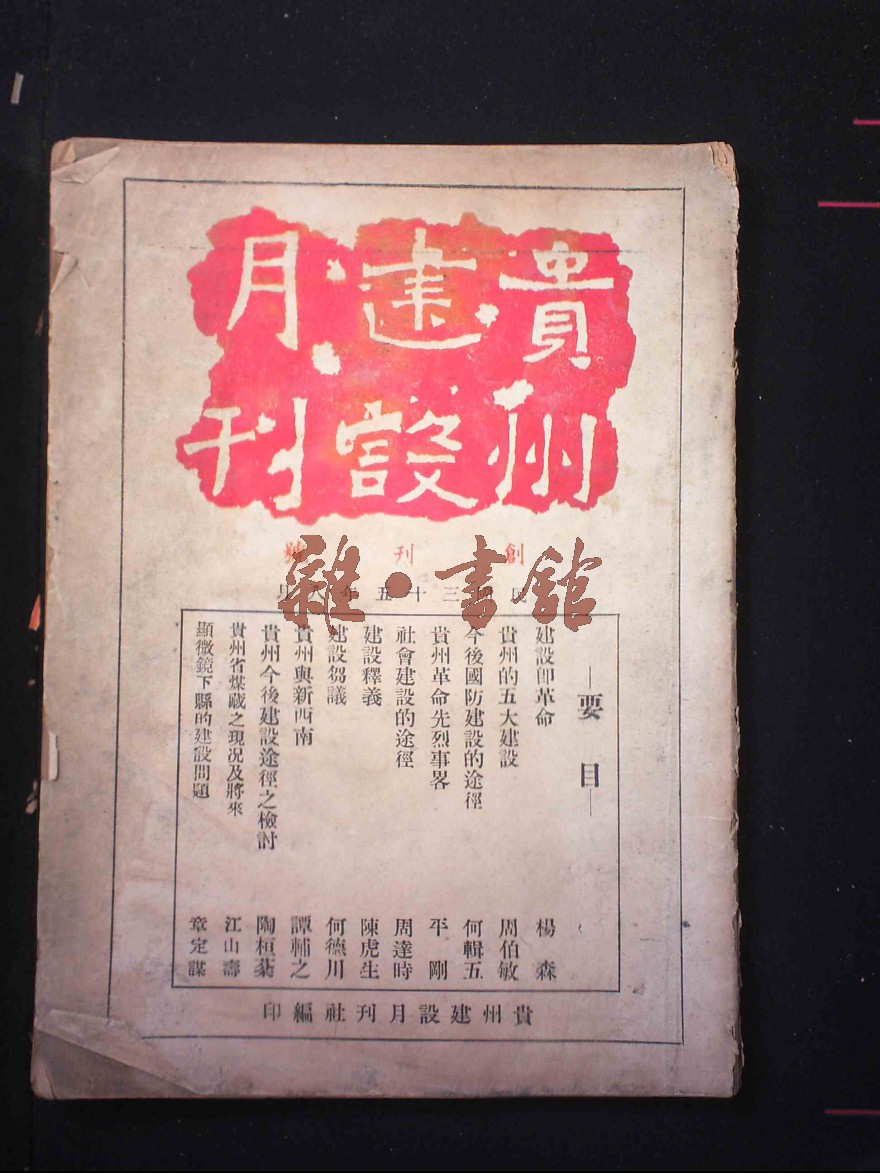 貴州建設月刊
創刊號
雜·書館
三十五年八月
要目
建設即革命 楊森
貴州的五大建設 周伯敏
今後國防建設的途徑 何輯五
貴州革命先烈事畧 平剛
社會建設的途徑 周達時
建設釋義 陳虎生
建設芻議 何德川
貴州與新西南 譚輔之
貴州今後建設途徑之檢討 陶桓棻
貴州省煤藏之現況及將來 江山壽
顯微鏡下縣的建設問題 章定謀
貴州建設月刊社編印